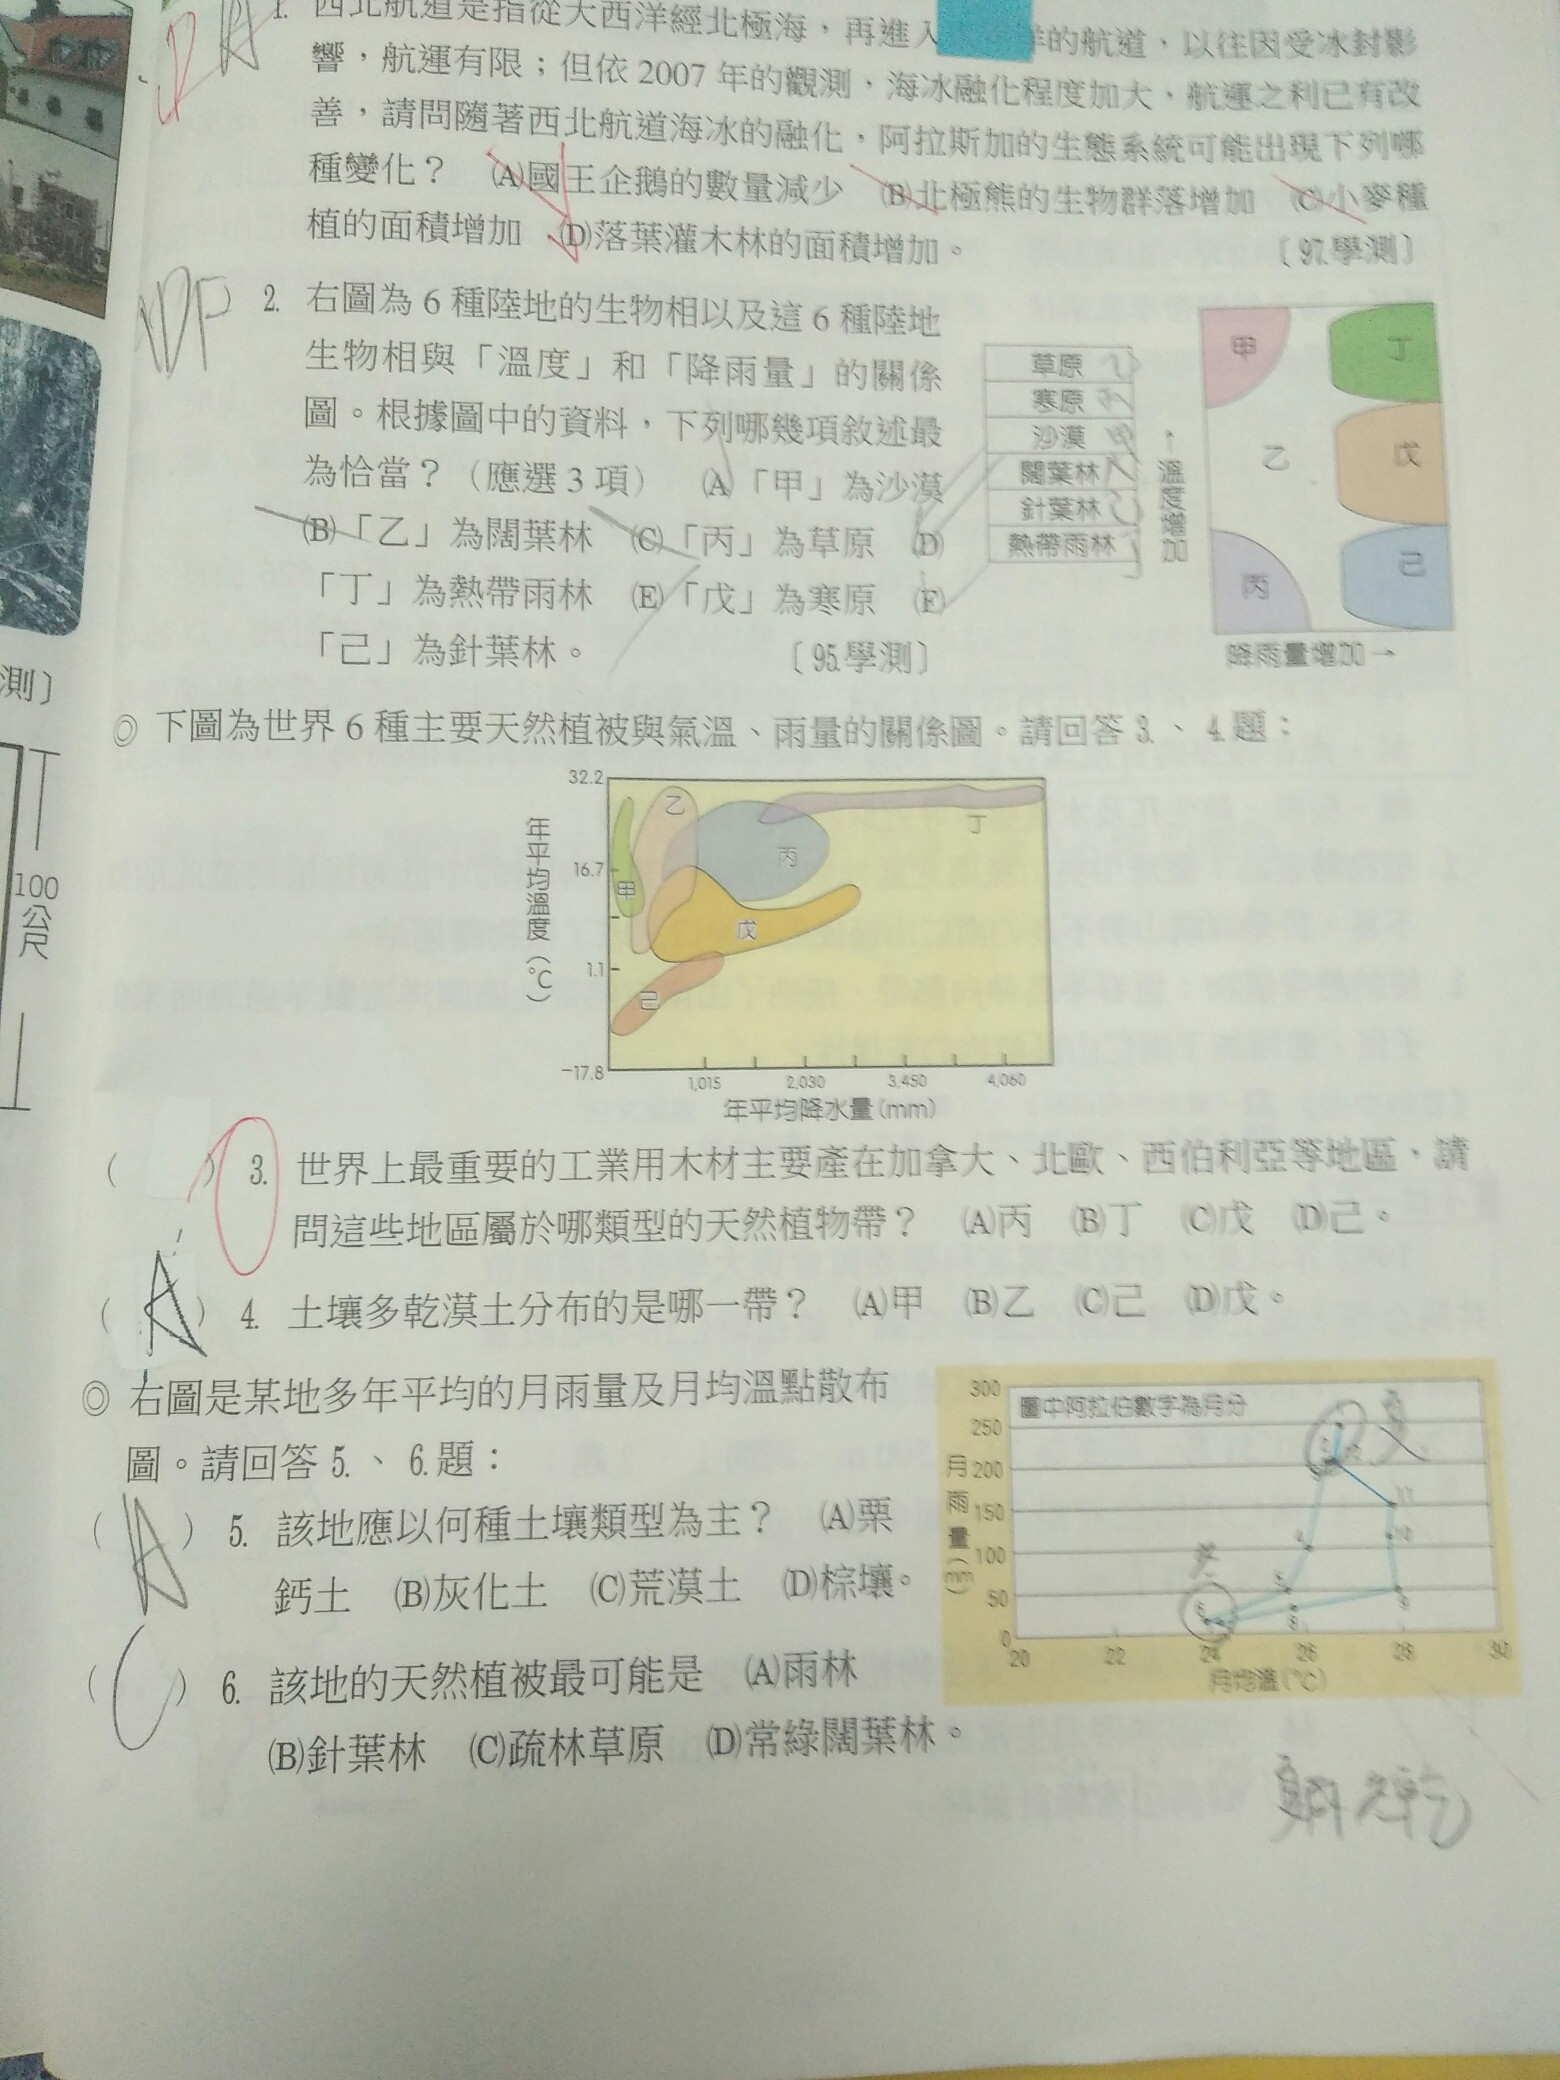 1. 西北航道是指從大西洋經北極海，再進入 洋的航道，以往因受冰封影
響，航運有限；但依 2007 年的觀測，海冰融化程度加大，航運之利已有改
善，請問隨著西北航道海冰的融化，阿拉斯加的生態系統可能出現下列哪
種變化？ (A)國王企鵝的數量減少 (B)北極熊的生物群落增加 (C)小麥種
植的面積增加 (D)落葉灌木林的面積增加。 〔97.學測〕
2. 右圖為 6 種陸地的生物相以及這 6 種陸地
生物相與「溫度」和「降雨量」的關係
圖。根據圖中的資料，下列哪幾項敘述最
為恰當？（應選 3 項） (A)「甲」為沙漠
(B)「乙」為闊葉林 (C)「丙」為草原 (D)
「丁」為熱帶雨林 (E)「戊」為寒原 (F)
「己」為針葉林。 〔95.學測〕
草原
寒原
沙漠
闊葉林
針葉林
熱帶雨林
↑溫度增加
甲
丁
乙
戊
丙
己
降雨量增加→
測〕
100
公
尺
◎ 下圖為世界 6 種主要天然植被與氣溫、雨量的關係圖。請回答 3.、4.題：
年平均溫度(℃)
32.2
16.7
1.1
−17.8
甲
乙
丙
丁
戊
己
1,015 2,030 3,450 4,060
年平均降水量(mm)
( ) 3. 世界上最重要的工業用木材主要產在加拿大、北歐、西伯利亞等地區，請
問這些地區屬於哪類型的天然植物帶？ (A)丙 (B)丁 (C)戊 (D)己。
( A ) 4. 土壤多乾漠土分布的是哪一帶？ (A)甲 (B)乙 (C)己 (D)戊。
◎ 右圖是某地多年平均的月雨量及月均溫點散布
圖。請回答 5.、6.題：
( A ) 5. 該地應以何種土壤類型為主？ (A)栗
鈣土 (B)灰化土 (C)荒漠土 (D)棕壤。
( C ) 6. 該地的天然植被最可能是 (A)雨林
(B)針葉林 (C)疏林草原 (D)常綠闊葉林。
圖中阿拉伯數字為月分
月雨量(mm)
300
250
200
150
100
50
0
11
10
9
8
5
4
20 22 24 26 28 30
月均溫(℃)